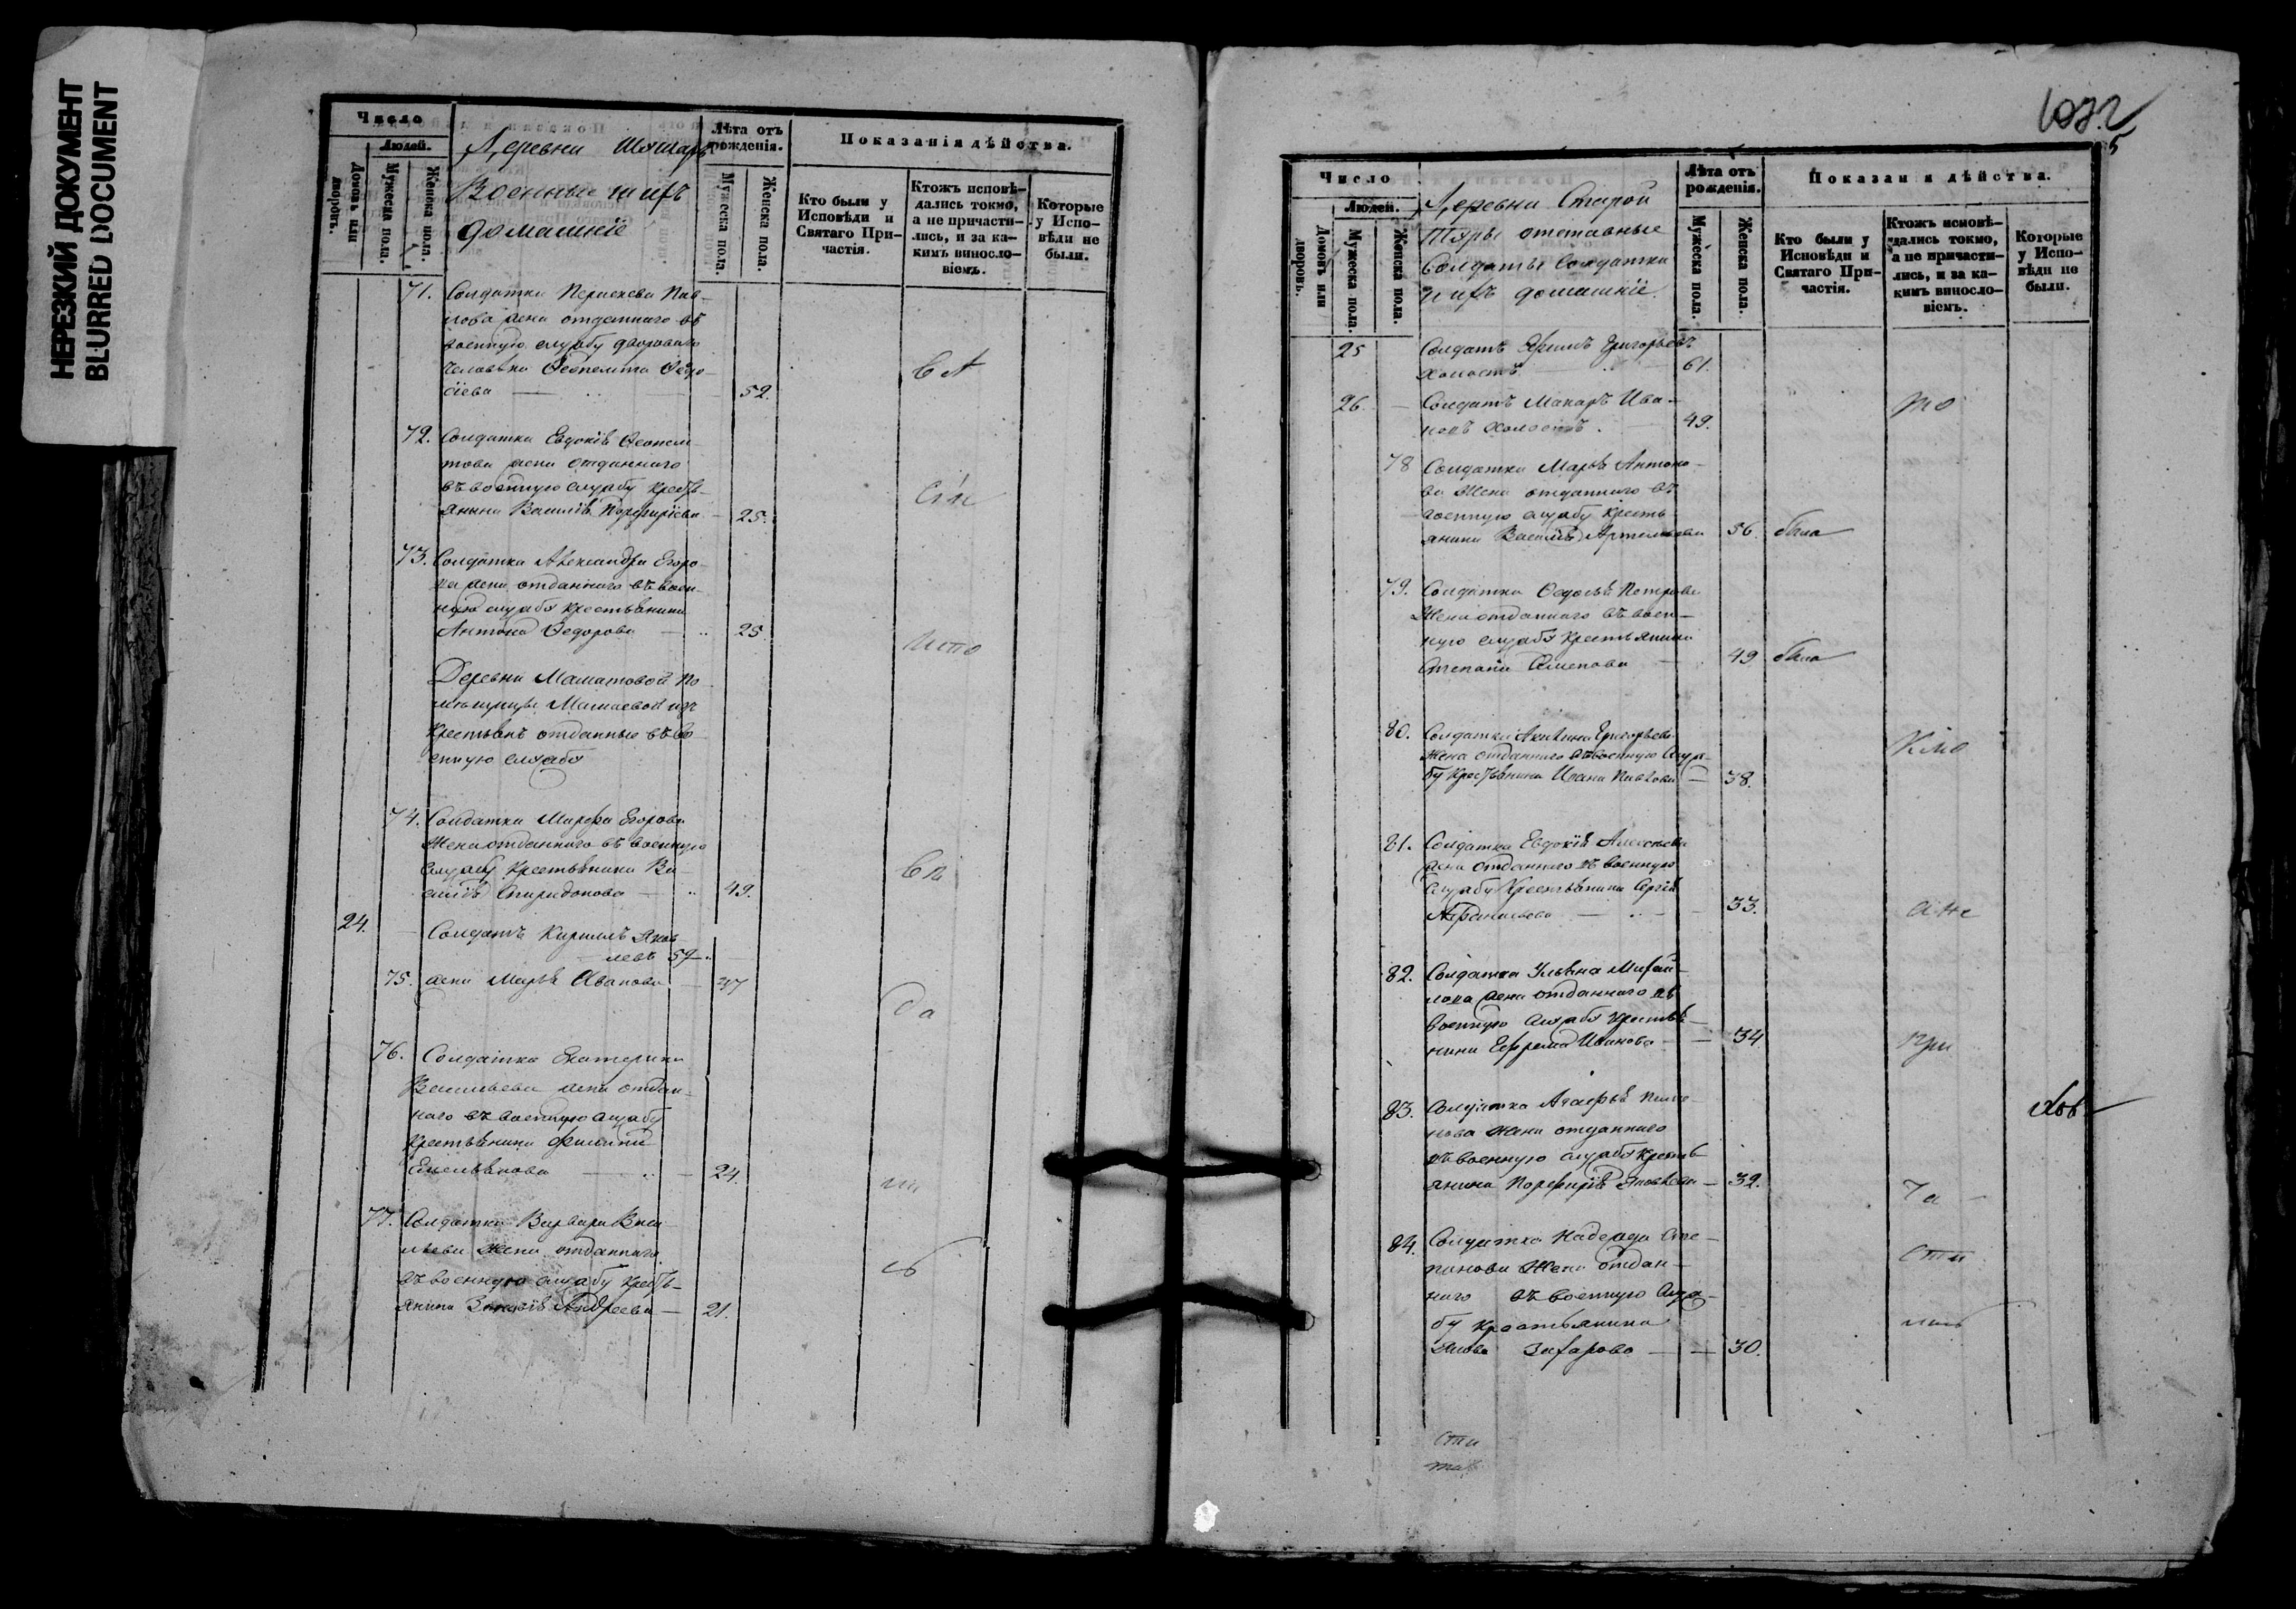 НЕРЕЗКИЙ ДОКУМЕНТ
BLURRED DOCUMENT
Число
Людей.
Домовъ или дворовъ.
Мужеска пола.
Женска пола.
Деревни
Военные и ихъ
домашніе
Лѣта отъ рожденія.
Мужеска пола.
Женска пола.
Показанія дѣйства.
Кто были у Исповѣди и Святаго Причастія.
Ктожъ исповѣдались токмо, а не причастились, и за какимъ винословіемъ.
Которые у Исповѣди не были.
71. Солдатка Параскева Пав-
лова жена отданнаго въ
военную службу двороваго
человѣка Ѳеопемпта Ѳедо-
сіева 52.
72. Солдатка Евдокія Ѳеопем-
това жена отданнаго
въ военную службу кресть-
янина Василія Порфиріева 25.
73. Солдатка Александра Егоро-
ва жена отданнаго въ воен-
ную службу крестьянина
Антона Ѳедорова 25
Деревни Маматовой по-
мѣщицы изъ
крестьянъ отданные въ во-
енную службу
74. Солдатка Марфа Егорова
жена отданнаго въ военную
службу крестьянина Ва-
силія Спиридонова 49.
24. Солдатъ Кириллъ Яков-
левъ 59
75. жена Марья Иванова 47
76. Солдатка Екатерина
Васильева жена отдан-
наго въ военную службу
крестьянина Филиппа
Емельянова 24.
77. Солдатка Варвара Васи-
льева жена отданнаго
въ военную службу кресть-
янина Андреева 21.
5
Число
Людей.
Домовъ или дворовъ.
Мужеска пола.
Женска пола.
Деревни Старой
отставные
Солдаты Солдатки
и ихъ домашніе
Лѣта отъ рожденія.
Мужеска пола.
Женска пола.
Показанія дѣйства.
Кто были у Исповѣди и Святаго Причастія.
Ктожъ исповѣдались токмо, а не причастились, и за какимъ винословіемъ.
Которые у Исповѣди не были.
25 Солдатъ Ефимъ Григорьевъ
холостъ 61.
26. Солдатъ Макаръ Ива-
новъ холостъ. 49.
то
78 Солдатка Марья Антоно-
ва жена отданнаго въ
военную службу кресть-
янина Василія Артемьева 56. была
79. Солдатка Ѳедосья Петрова
жена отданнаго въ воен-
ную службу крестьянина
Степана Семенова 49 была
80. Солдатка Акилина Григорьева
жена отданнаго въ военную служ-
бу крестьянина Ивана Павлова 38.
81. Солдатка Евдокія Алексѣева
жена отданнаго въ военную
службу крестьянина Сергѣя
Афанасьева 33.
а не
82. Солдатка Ульяна Михай-
лова жена отданнаго въ
военную службу крестья-
нина Ефрема Иванова 34
при
83. Солдатка Агафья
жена отданнаго
въ военную службу кресть-
янина Порфирія Яковлева 32.
ча
84. Солдатка Надежда Сте-
панова жена отдан-
наго въ военную служ-
бу крестьянина
Якова Захарова 30.
сти
лись